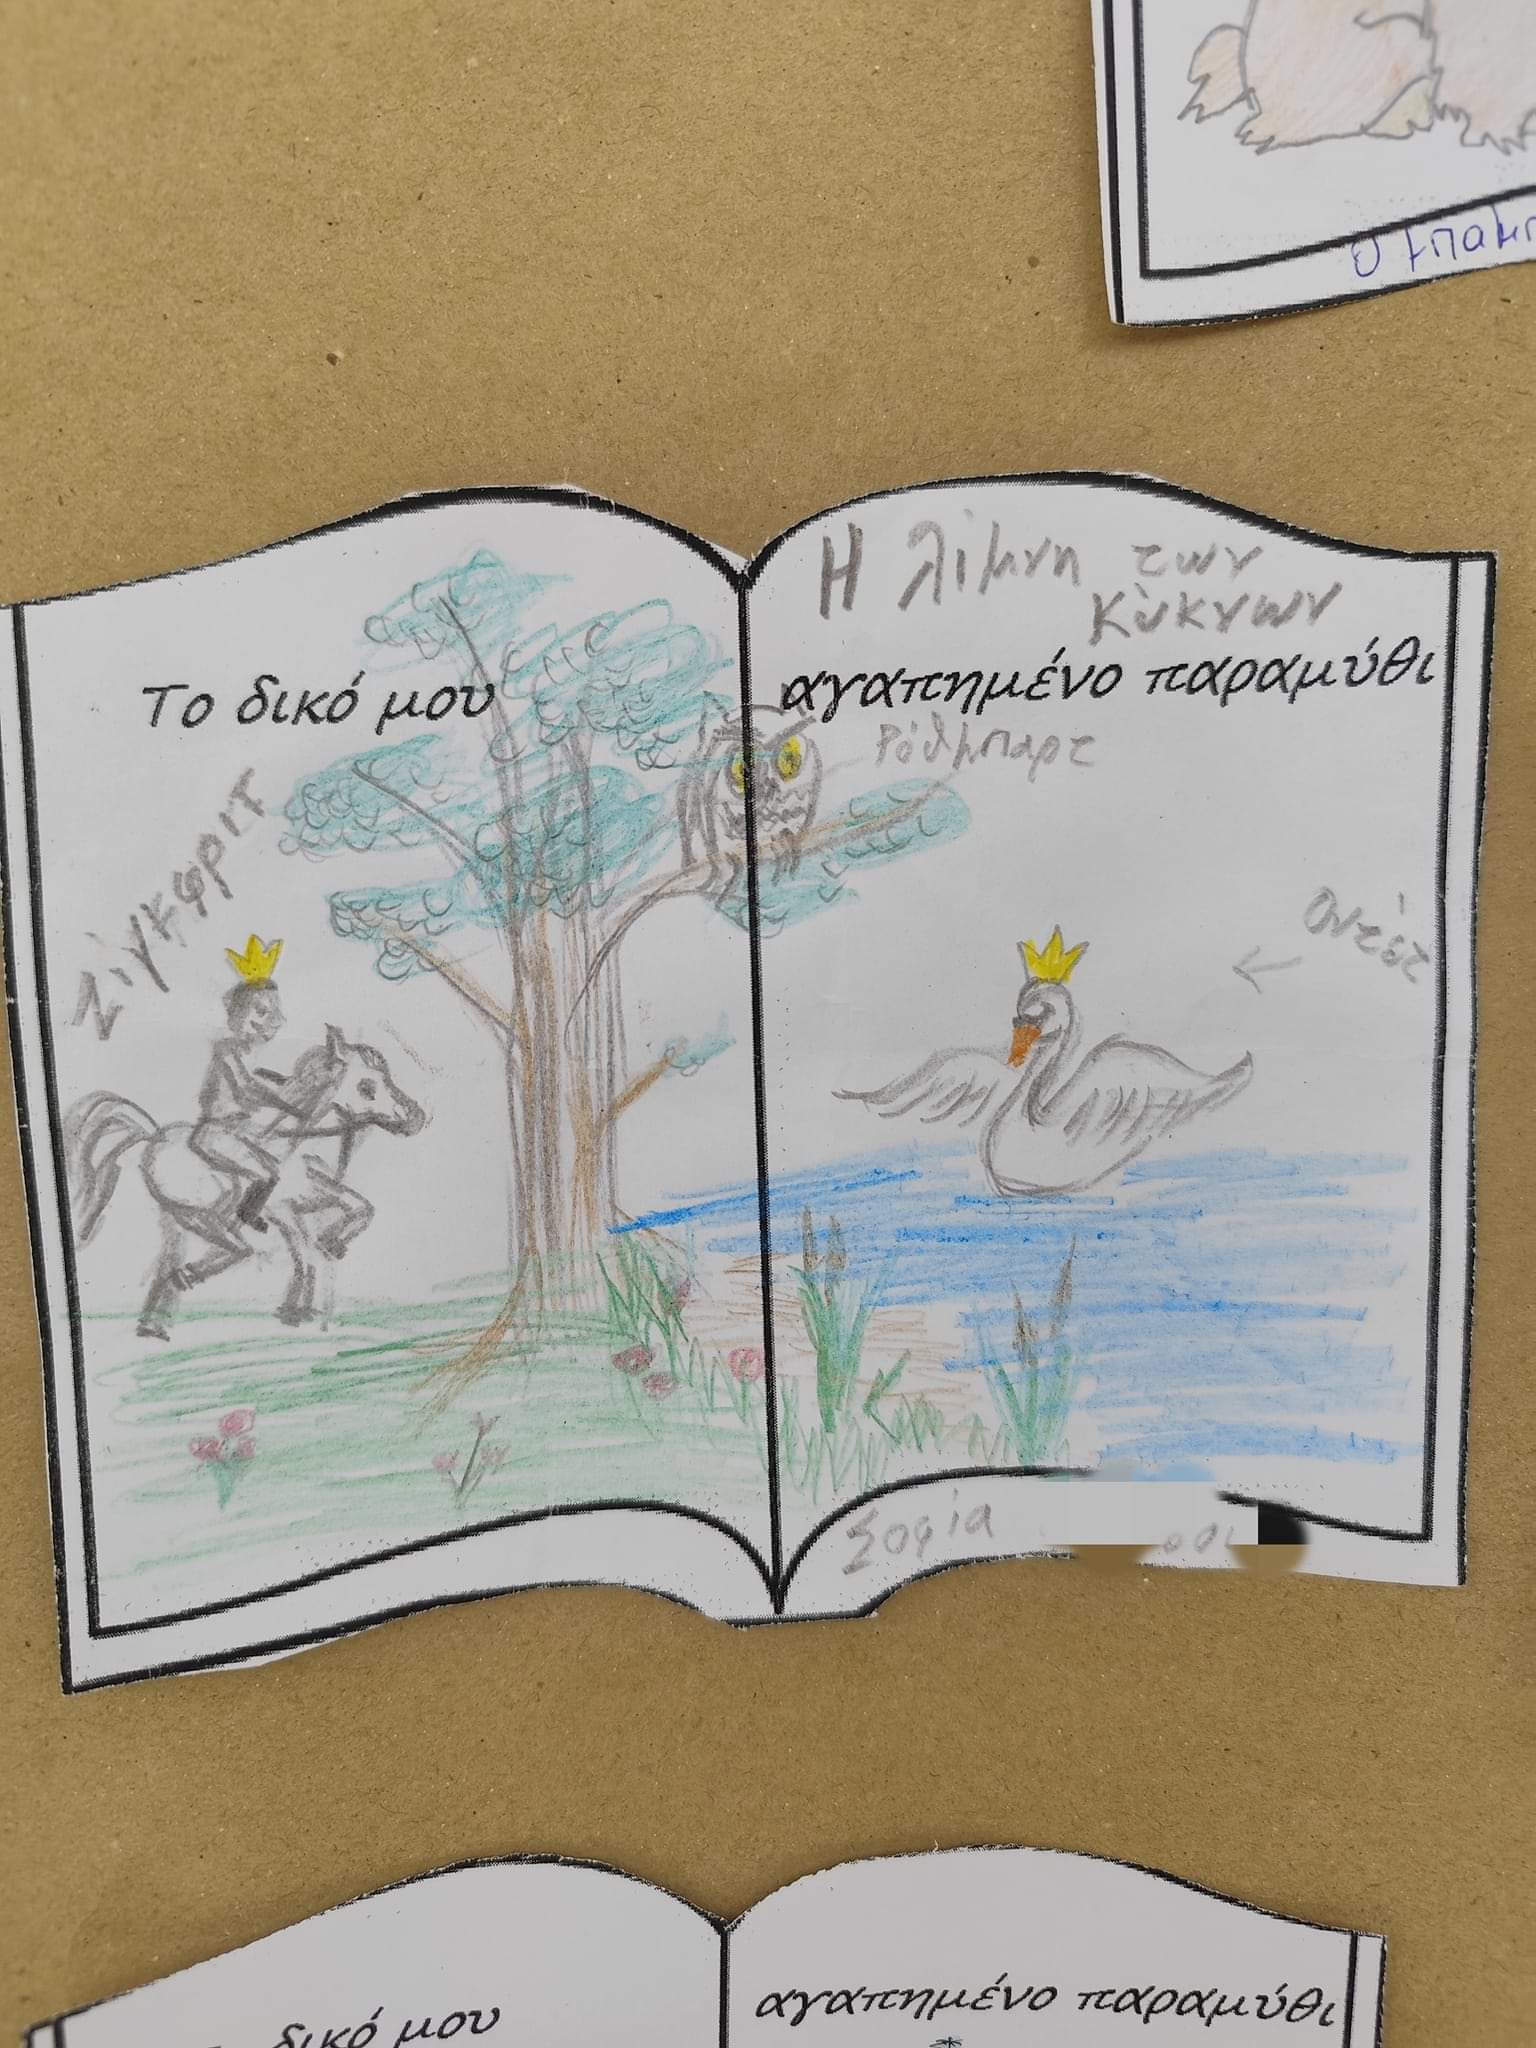 Ο Μπαμπ
Η λίμνη των
Κύκνων
Το δικό μου αγαπημένο παραμύθι
Ρόθμπαρτ
Ζίγκφριτ
Οντέτ
Σοφία
δικό μου αγαπημένο παραμύθι